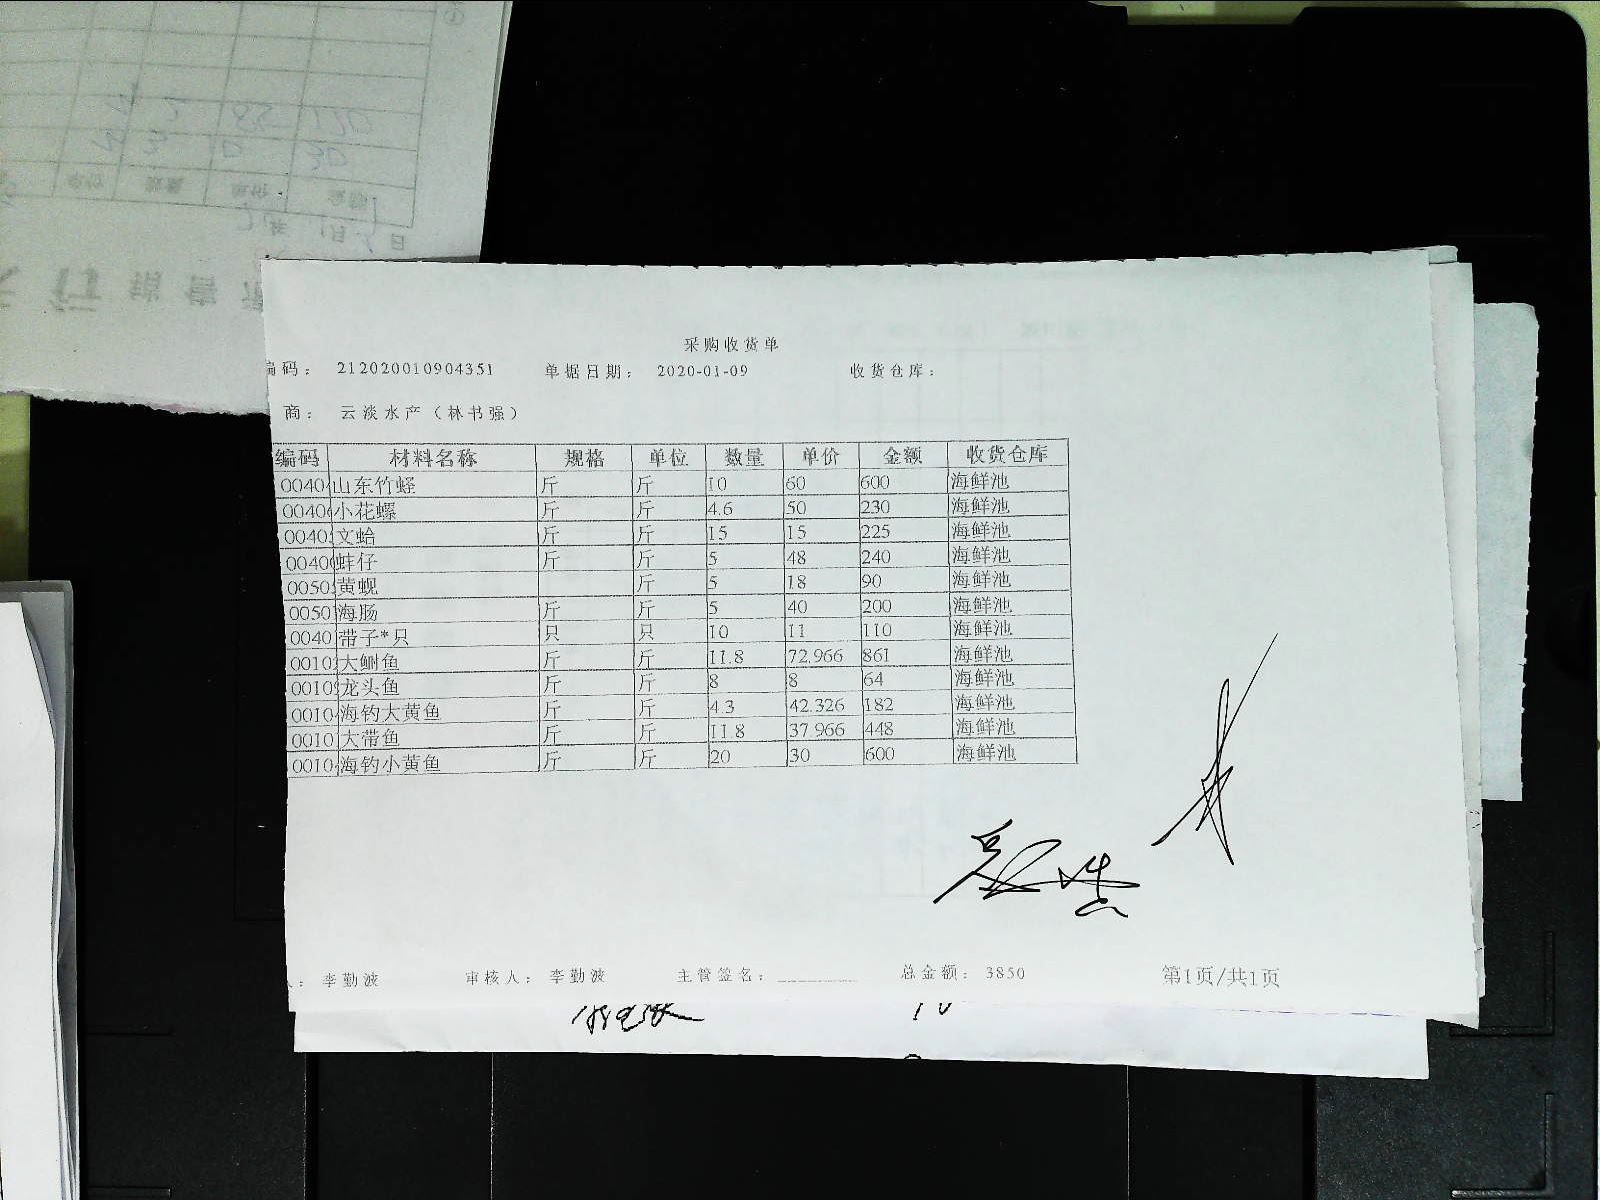 采购收货单
编码： 212020010904351 单据日期： 2020-01-09 收货仓库：
商： 云淡水产（林书强）
编码 材料名称 规格 单位 数量 单价 金额 收货仓库
0040 山东竹蛏 斤 斤 10 60 600 海鲜池
0040 小花螺 斤 斤 4.6 50 230 海鲜池
0040 文蛤 斤 斤 15 15 225 海鲜池
0040 蚌仔 斤 斤 5 48 240 海鲜池
0050 黄蚬 斤 5 18 90 海鲜池
0050 海肠 斤 斤 5 40 200 海鲜池
0040 带子*只 只 只 10 11 110 海鲜池
0010 大鮰鱼 斤 斤 11.8 72.966 861 海鲜池
0010 龙头鱼 斤 斤 8 8 64 海鲜池
0010 海钓大黄鱼 斤 斤 4.3 42.326 182 海鲜池
0010 大带鱼 斤 斤 11.8 37.966 448 海鲜池
0010 海钓小黄鱼 斤 斤 20 30 600 海鲜池
人： 李勤波 审核人： 李勤波 主管签名： 总金额： 3850 第1页/共1页